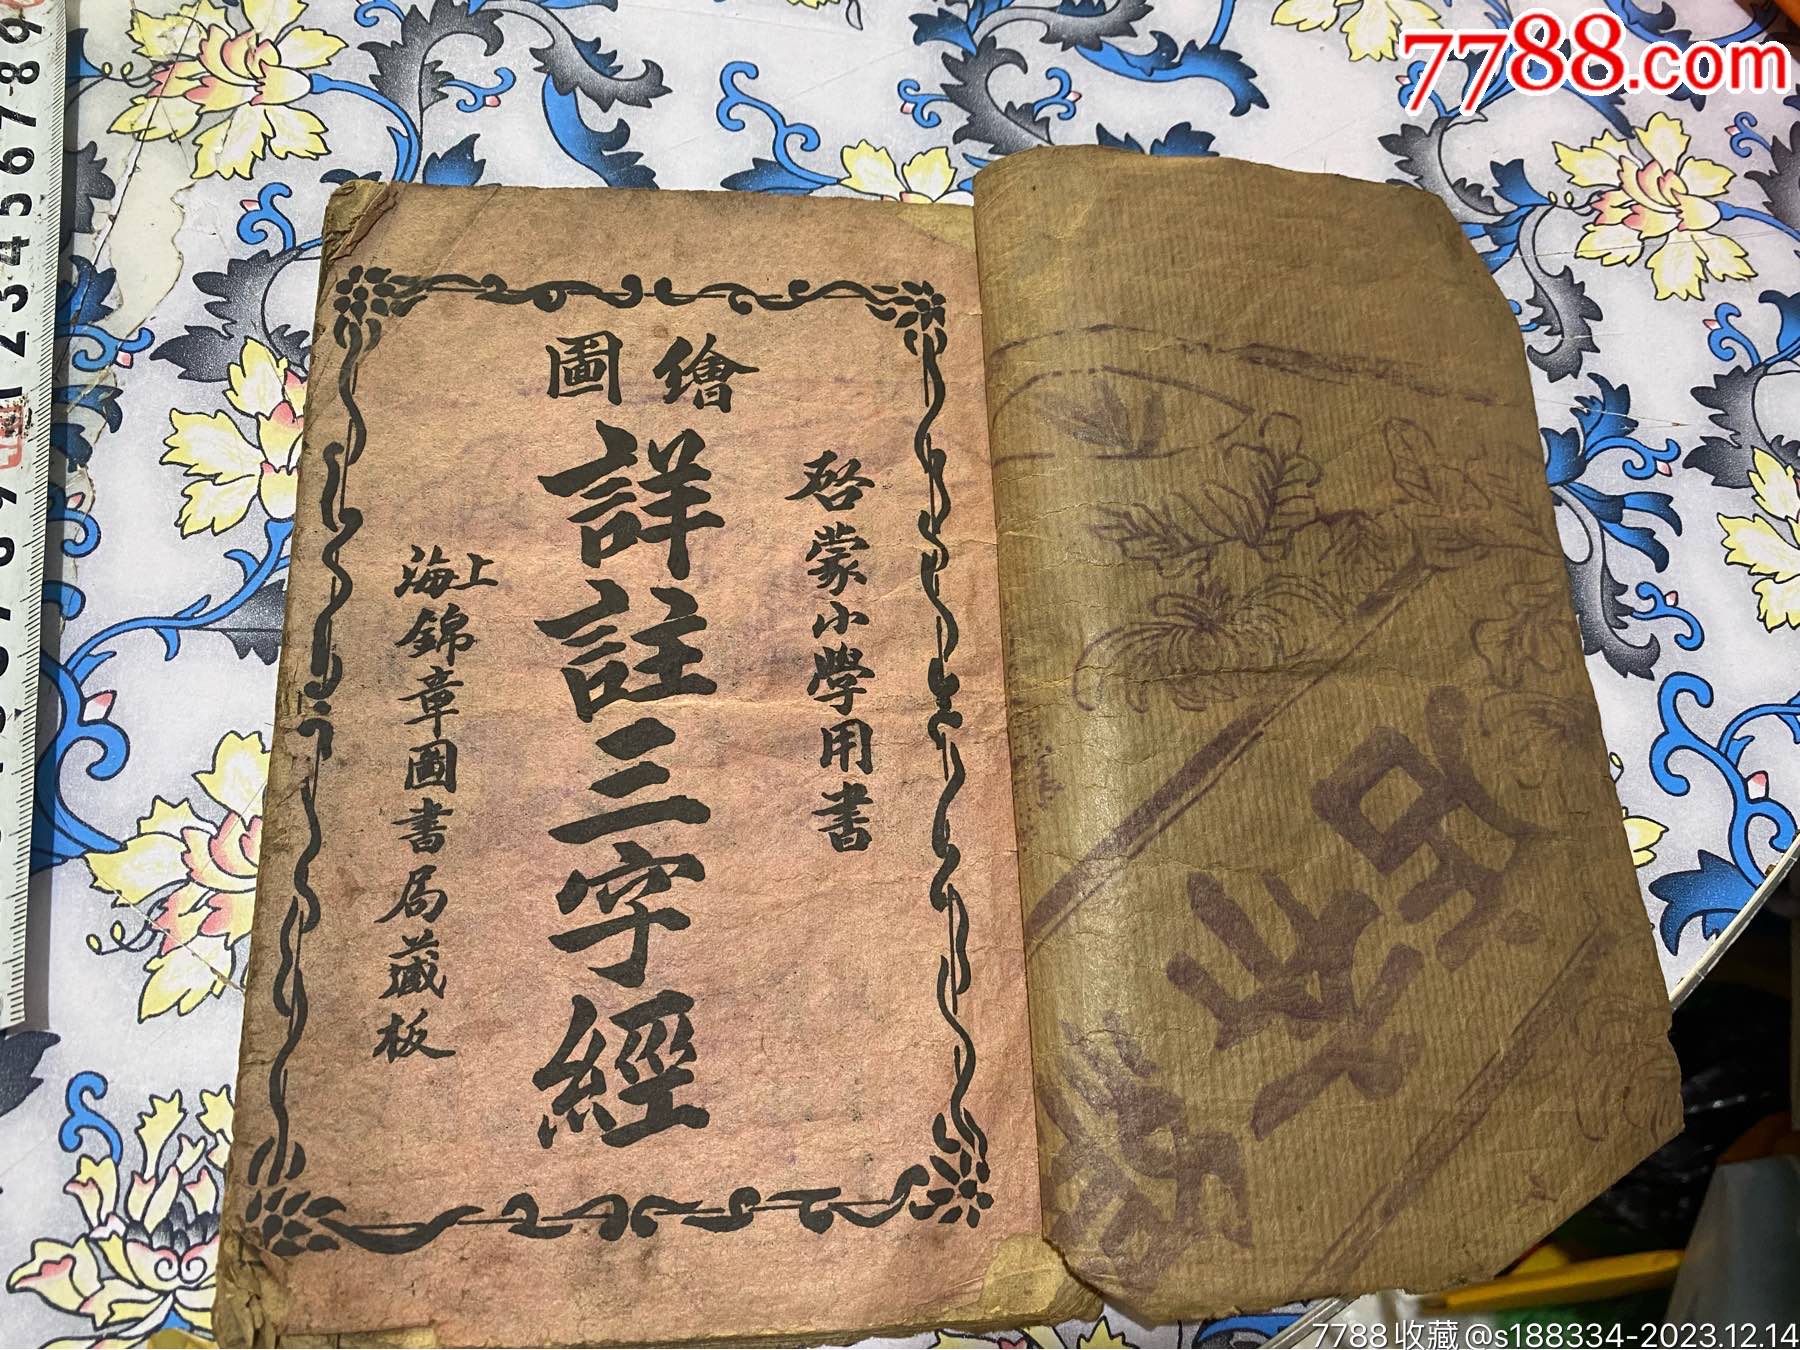 7788.com
繪圖
啓蒙小學用書
詳註三字經
上海錦章圖書局藏板
987654321
7788收藏@s188334-2023.12.14